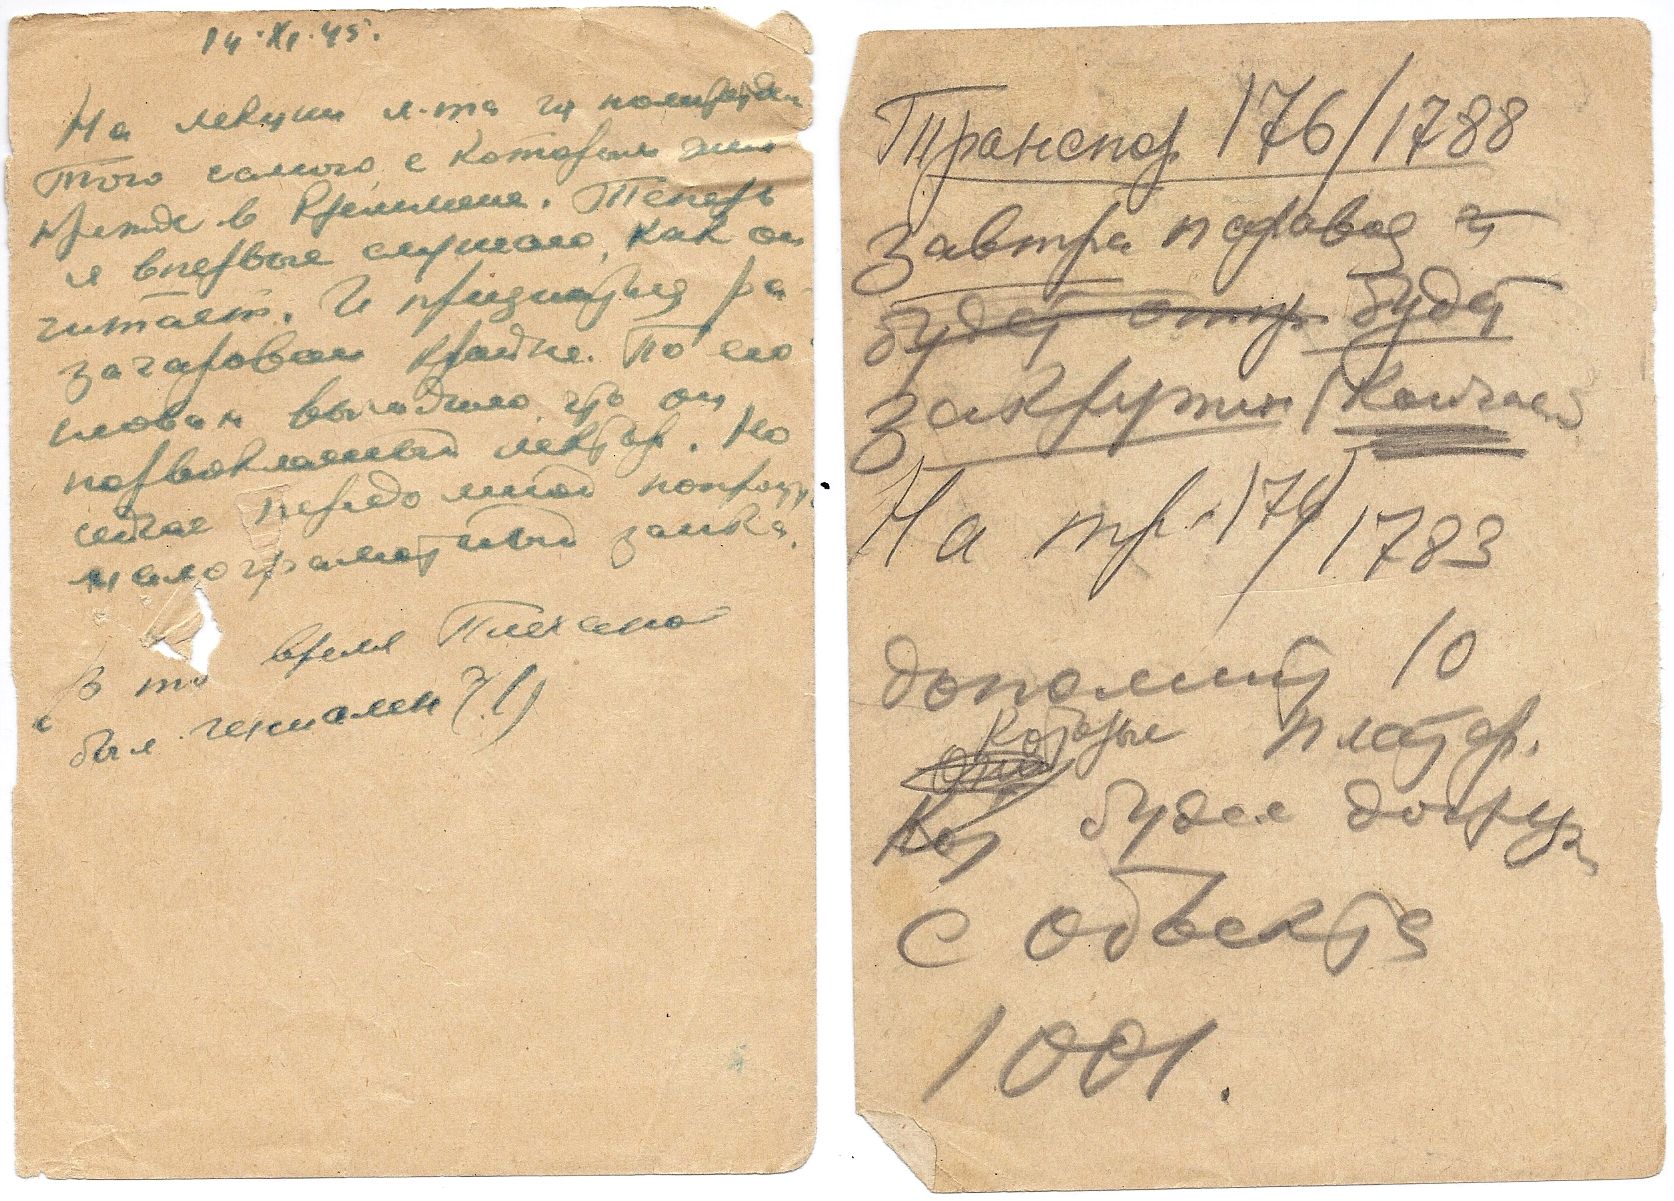 14·XI·45.
На лекции л-та из
того самого, с которым жил
прежде в Креммене. Теперь
я впервые слушаю, как он
читает. И признаться ра-
зачарован крайне. По его
словам выходило, что он
первоклассный лектор. Но
сейчас передо мной
малограмотный заика.
В то время Плехано
был гениален?(!)
Транспор 176/1788
завтра
будет отпр. будет
закружен (Кончаем
На тр. 176/1783
дополнит 10
Которые платфор.
Они
Кот будем догруз
с объекта
1001.